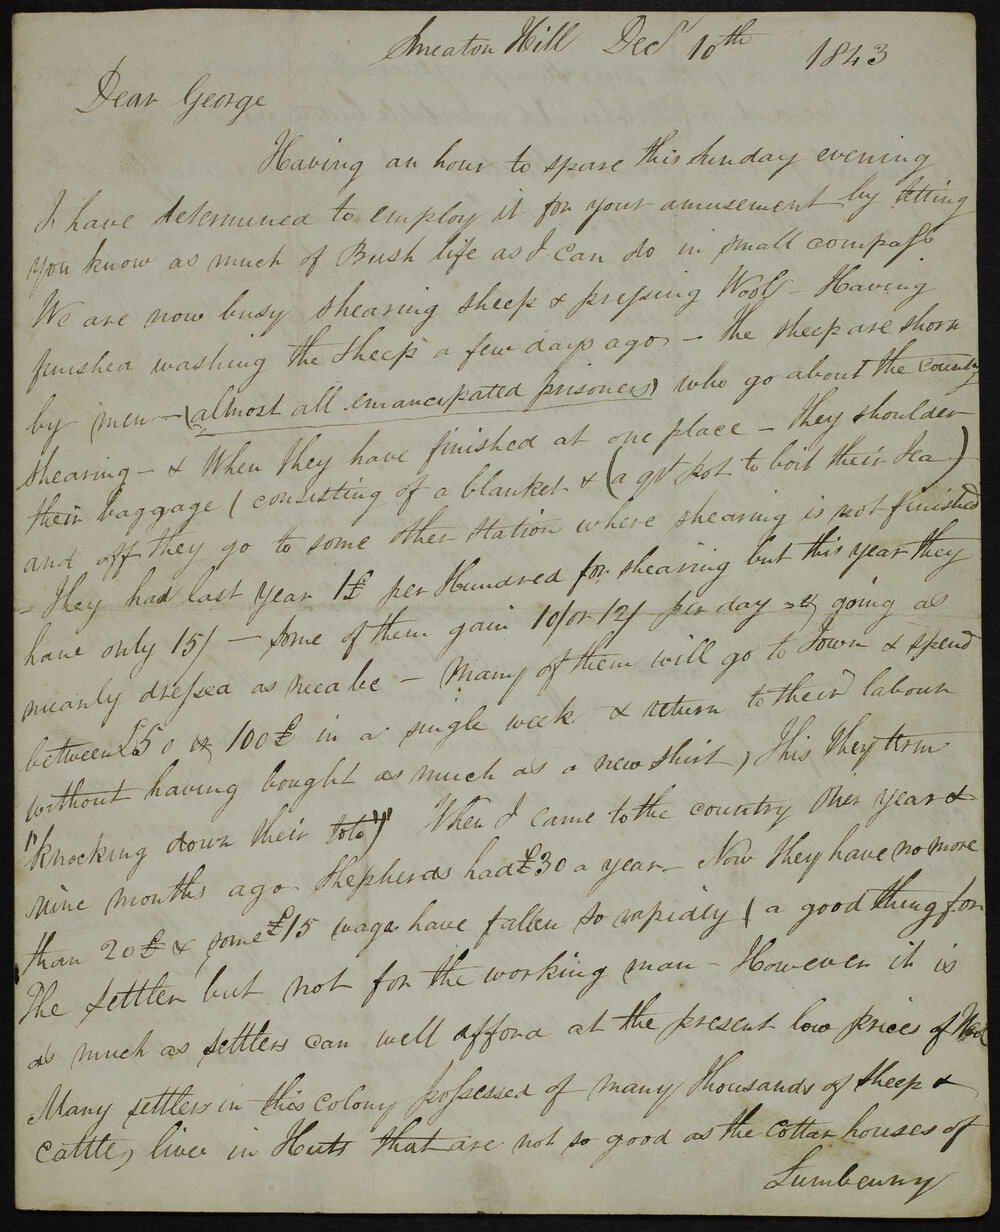 Smeaton Hill Decr 10th 1843
Dear George
Having an hour to spare this Sunday evening
I have determined to employ it for your amusement by letting
you know as much of Bush life as I can do in small compass
We are now busy shearing sheep & pressing Wool - Having
finished washing the sheep a few days ago - the sheep are shorn
by men - (almost all emancipated prisoners) who go about the country
shearing - & When they have finished at one place - they shoulder
their baggage (consisting of a blanket & (a qt pot to boil their tea)
and off they go to some other station where shearing is not finished
- They had last year 1£ per Hundred for shearing but this year they
have only 15/ - some of them gain 10/ or 12/ per day going as
meanly dressed as need be - Many of them will go to Town & spend
between £50 or 100£ in a single week & return to their labour
without having bought as much as a new shirt, This they term
"knocking down their toto)" When I came to the country Oner year &
nine months ago Shepherds had £30 a year - Now they have no more
than 20£ & some £15 wages have fallen so rapidly (a good thing for
the settler but not for the working man - However it is
as much as settlers can well afford at the present low prices of Wool
Many settlers in this colony possessed of many thousands of sheep &
cattle, live in Huts that are not so good as the Cottar houses of
Lumbenny